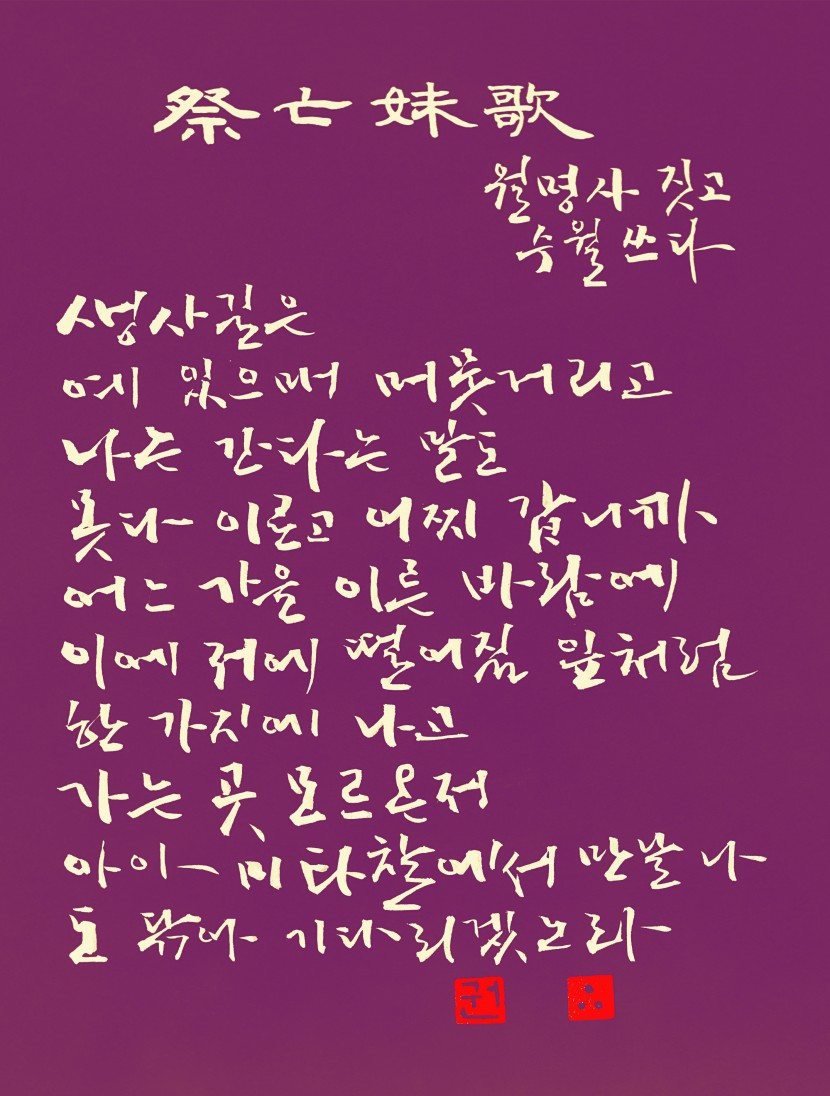 祭亡妹歌
월명사 짓고
수월 쓰다
생사길은
예 있으매 머뭇거리고
나는 간다는 말도
못다 이르고 어찌 갑니까
어느 가을 이른 바람에
이에 저에 떨어질 잎처럼
한 가지에 나고
가는 곳 모르온저
아이 미타찰에서 만날 나
도 닦아 기다리겠노라
권